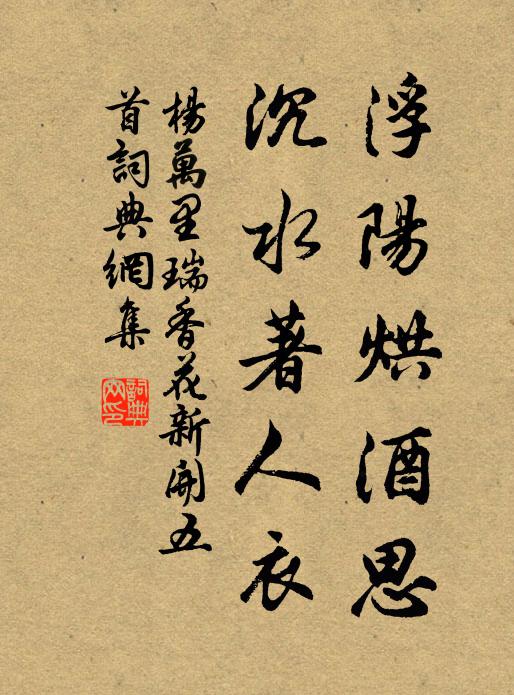 浮陽烘酒思
沉水著人衣
楊萬里瑞香花新開五
首詞典網集
詞典